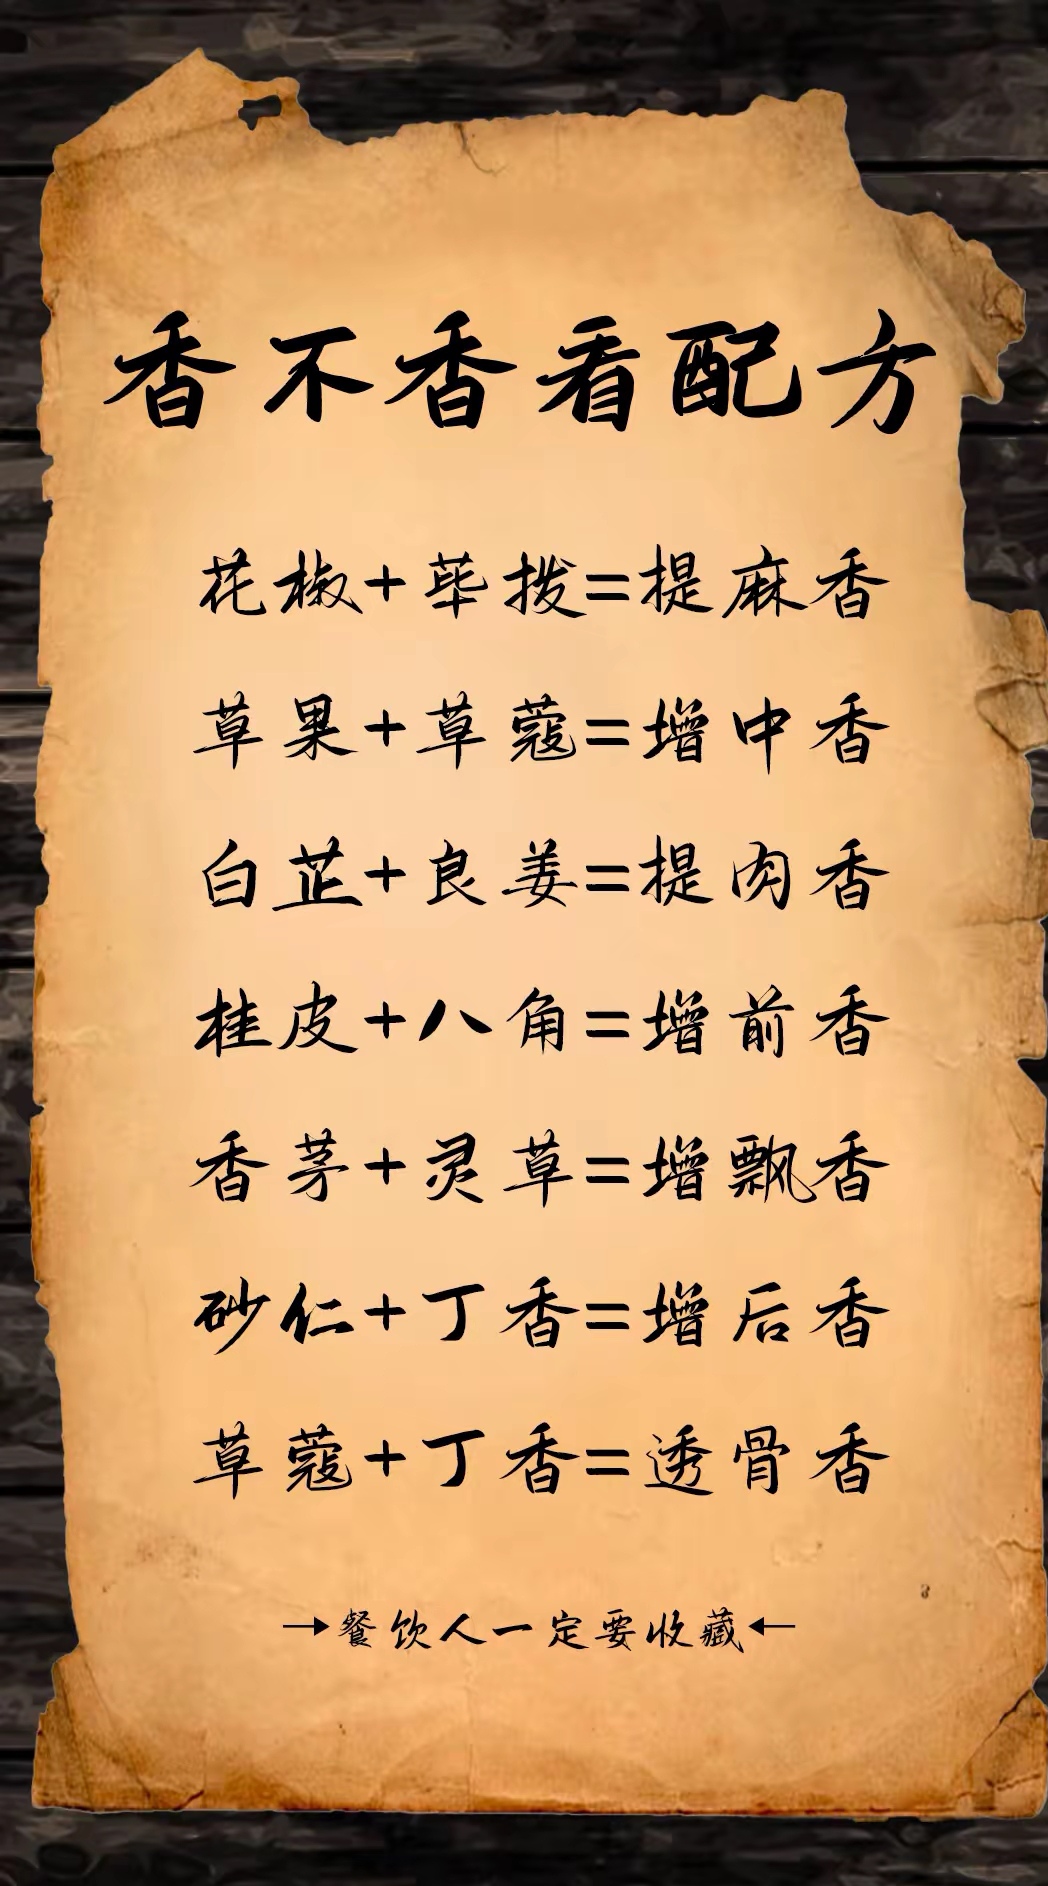 香不香看配方
花椒+荜拨=提麻香
草果+草蔻=增中香
白芷+良姜=提肉香
桂皮+八角=增前香
香茅+灵草=增飘香
砂仁+丁香=增后香
草蔻+丁香=透骨香
→餐饮人一定要收藏←